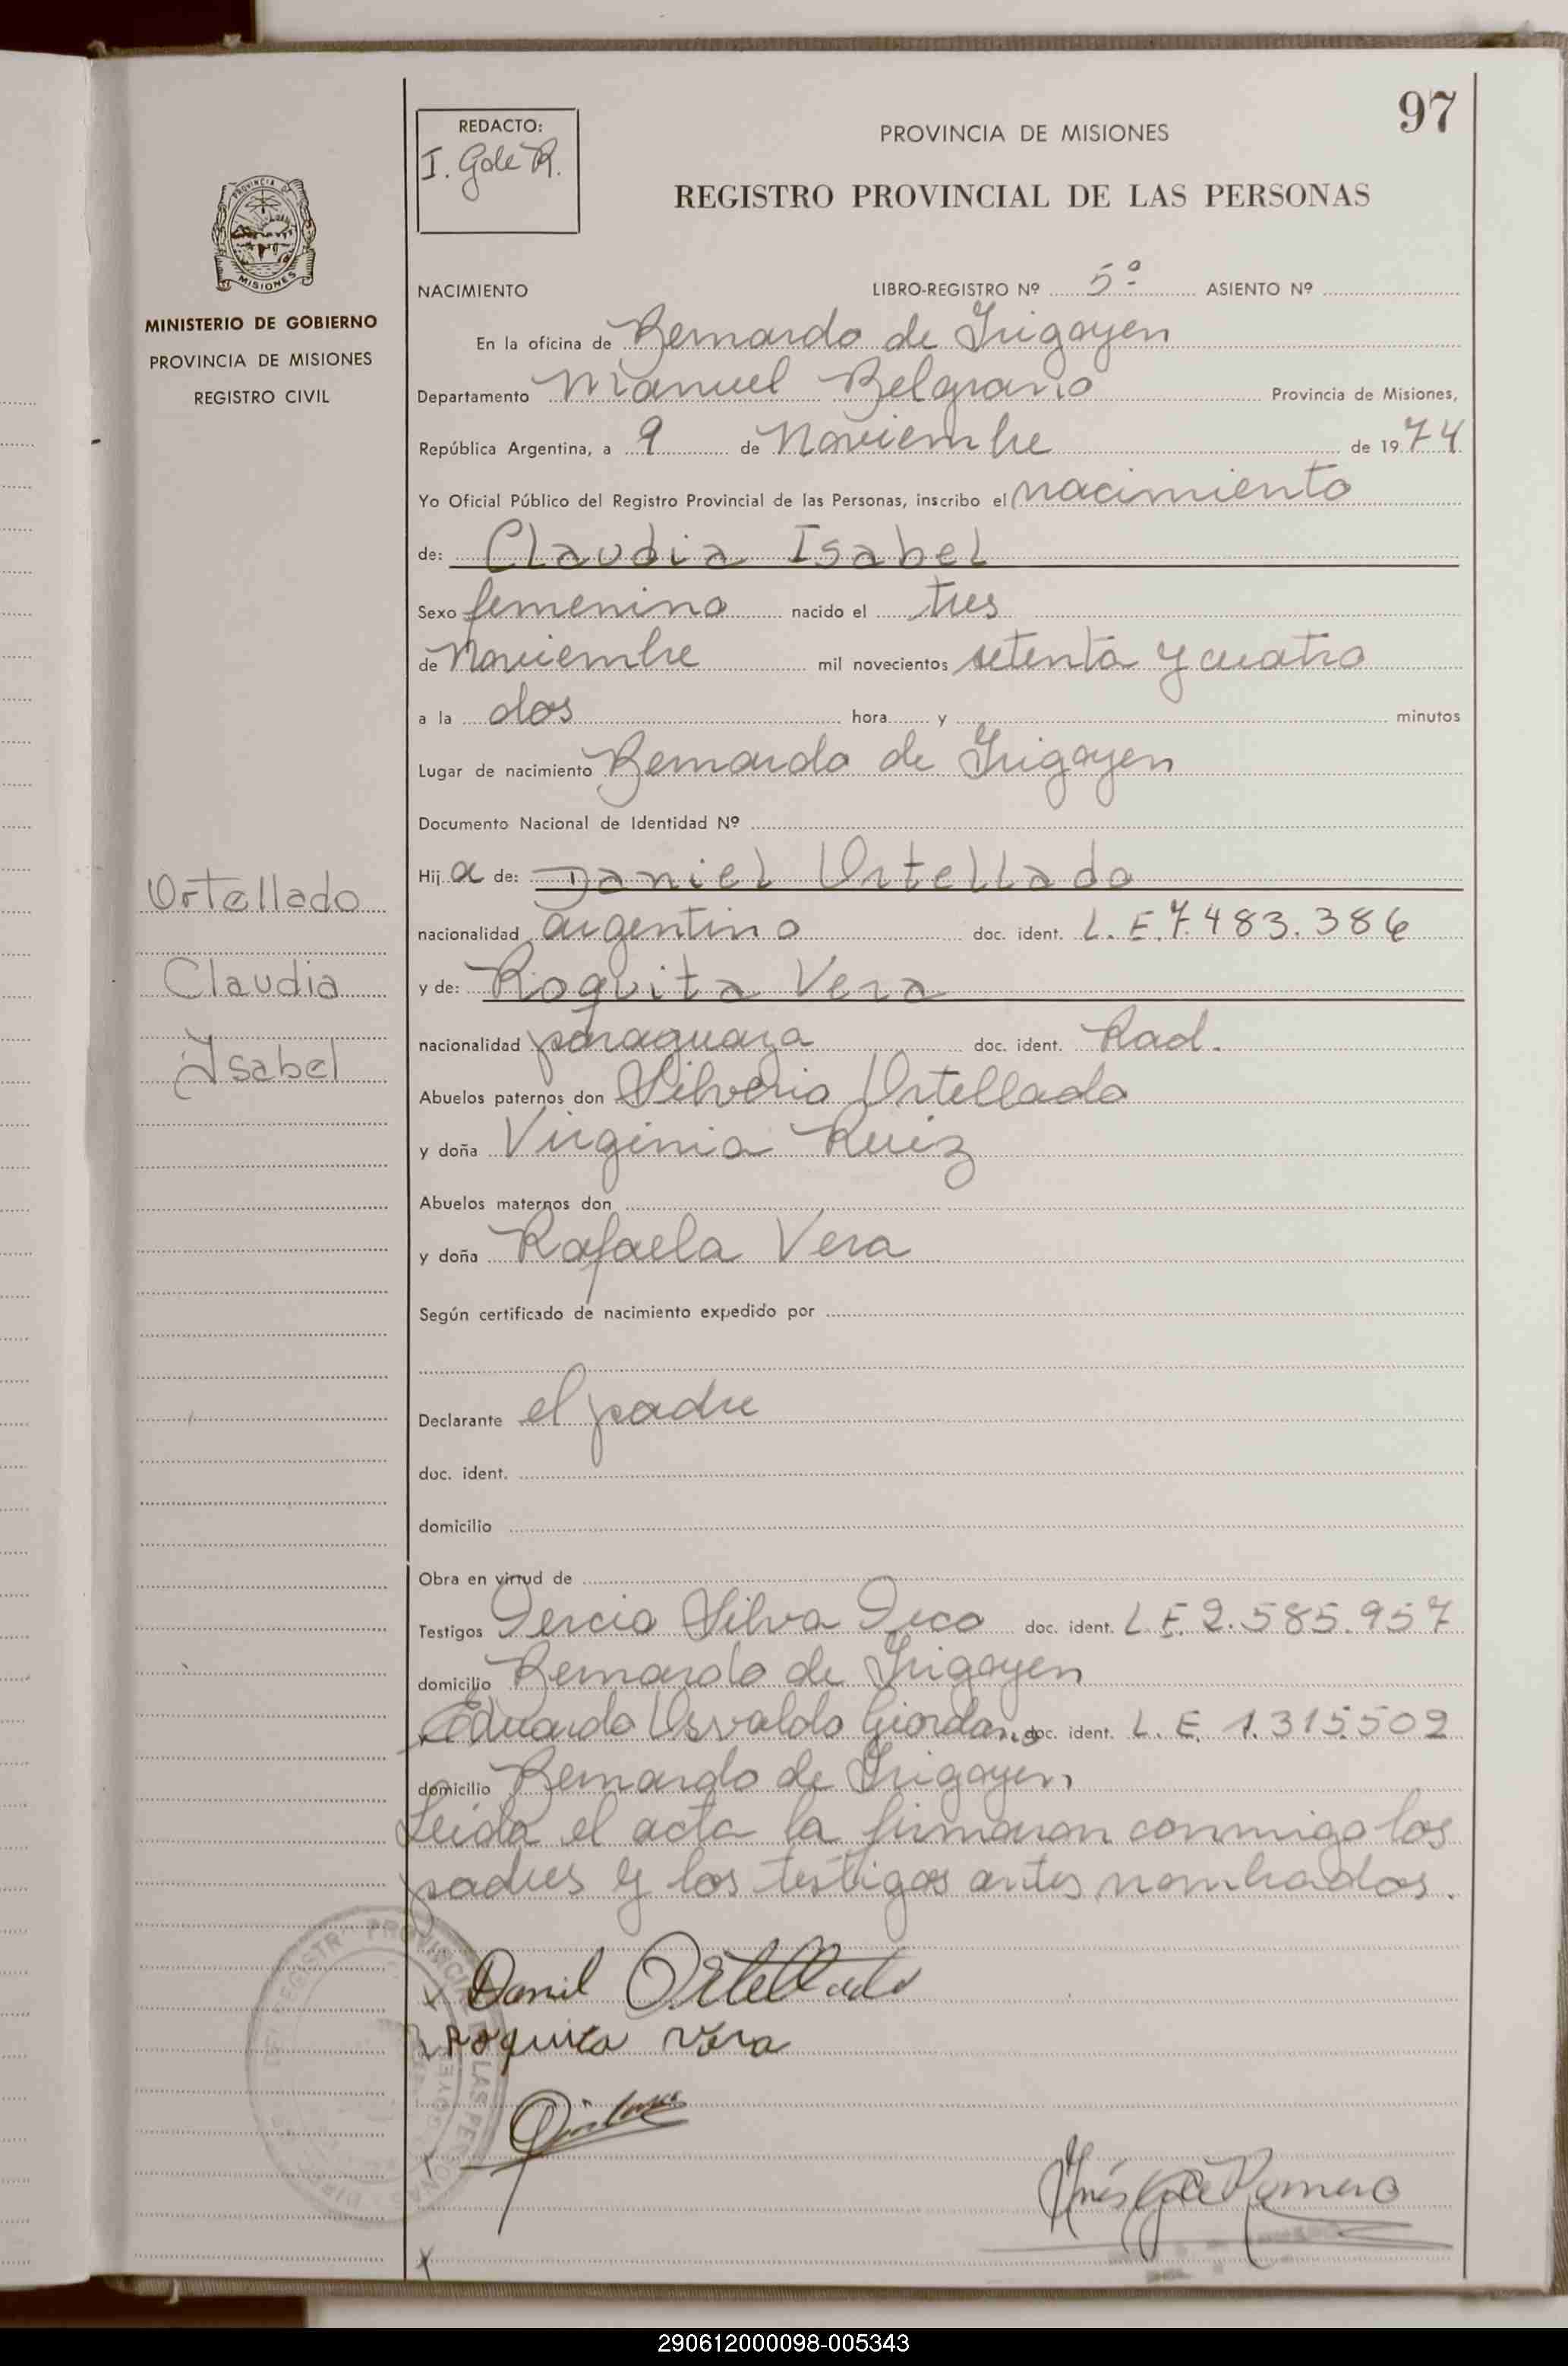 97
REDACTO:
I. Gole R.
PROVINCIA DE MISIONES
REGISTRO PROVINCIAL DE LAS PERSONAS
PROVINCIA DE
MISIONES
MINISTERIO DE GOBIERNO
PROVINCIA DE MISIONES
REGISTRO CIVIL
NACIMIENTO LIBRO-REGISTRO Nº 5º ASIENTO Nº
En la oficina de Bernardo de Irigoyen
Departamento Manuel Belgrano Provincia de Misiones,
República Argentina, a 9 de Noviembre de 1974
Yo Oficial Público del Registro Provincial de las Personas, inscribo el nacimiento
de: Claudia Isabel
Sexo femenino nacido el tres
de Noviembre mil novecientos setenta y cuatro
a la dos hora y minutos
Lugar de nacimiento Bernardo de Irigoyen
Documento Nacional de Identidad Nº
Ortellado
Claudia
Isabel
Hija de: Daniel Ortellado
nacionalidad argentino doc. ident. L.E.7.483.386
y de: Roquita Vera
nacionalidad paraguaya doc. ident. Rad.
Abuelos paternos don Silverio Ortellado
y doña Virginia Ruiz
Abuelos maternos don
y doña Rafaela Vera
Según certificado de nacimiento expedido por
Declarante el padre
doc. ident.
domicilio
Obra en virtud de
Testigos Tercio Silva Dico doc. ident. L.E. 2.585.957
domicilio Bernardo de Irigoyen
Eduardo Osvaldo Giordano doc. ident. L.E. 1.315.502
domicilio Bernardo de Irigoyen
Leida el acta la firmaron conmigo los
padres y los testigos antes nombrados.
Daniel Ortellado
Roquita Vera
Inés Gole Romero
290612000098-005343